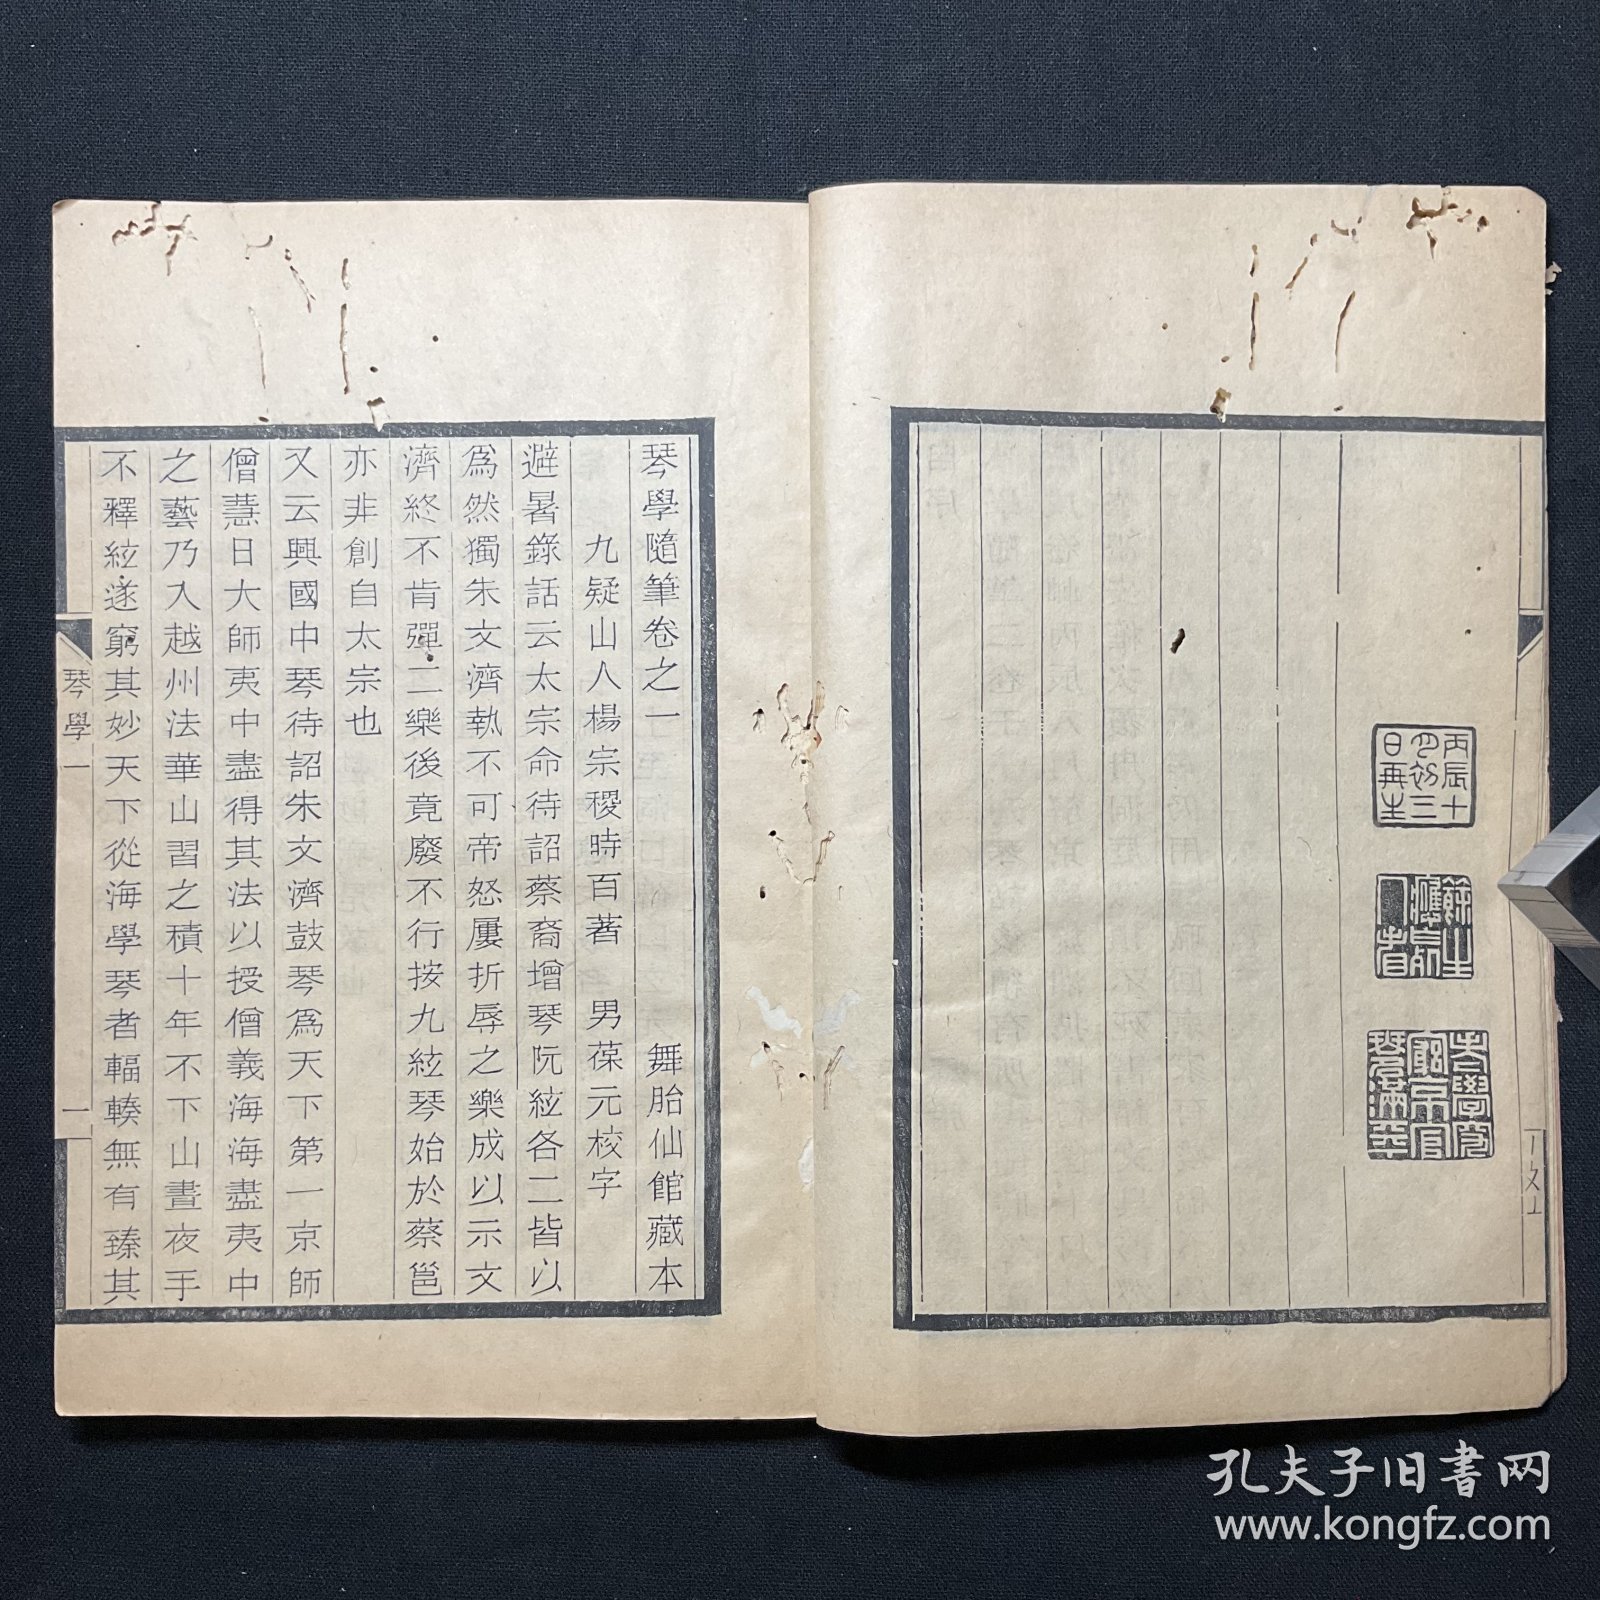 丙辰十
月初三
日再生
琴學隨筆卷之一 舞胎仙館藏本
九疑山人楊宗稷時百著 男葆元校字
避暑錄話云太宗命待詔蔡裔增琴阮絃各二皆以
爲然獨朱文濟執不可帝怒屢折辱之樂成以示文
濟終不肯彈二樂後竟廢不行按九絃琴始於蔡邕
亦非創自太宗也
又云興國中琴待詔朱文濟鼓琴爲天下第一京師
僧慧日大師夷中盡得其法以授僧義海海盡夷中
之藝乃入越州法華山習之積十年不下山晝夜手
不釋絃遂窮其妙天下從海學琴者輻輳無有臻其
琴學一
一
孔夫子旧书网
www.kongfz.com